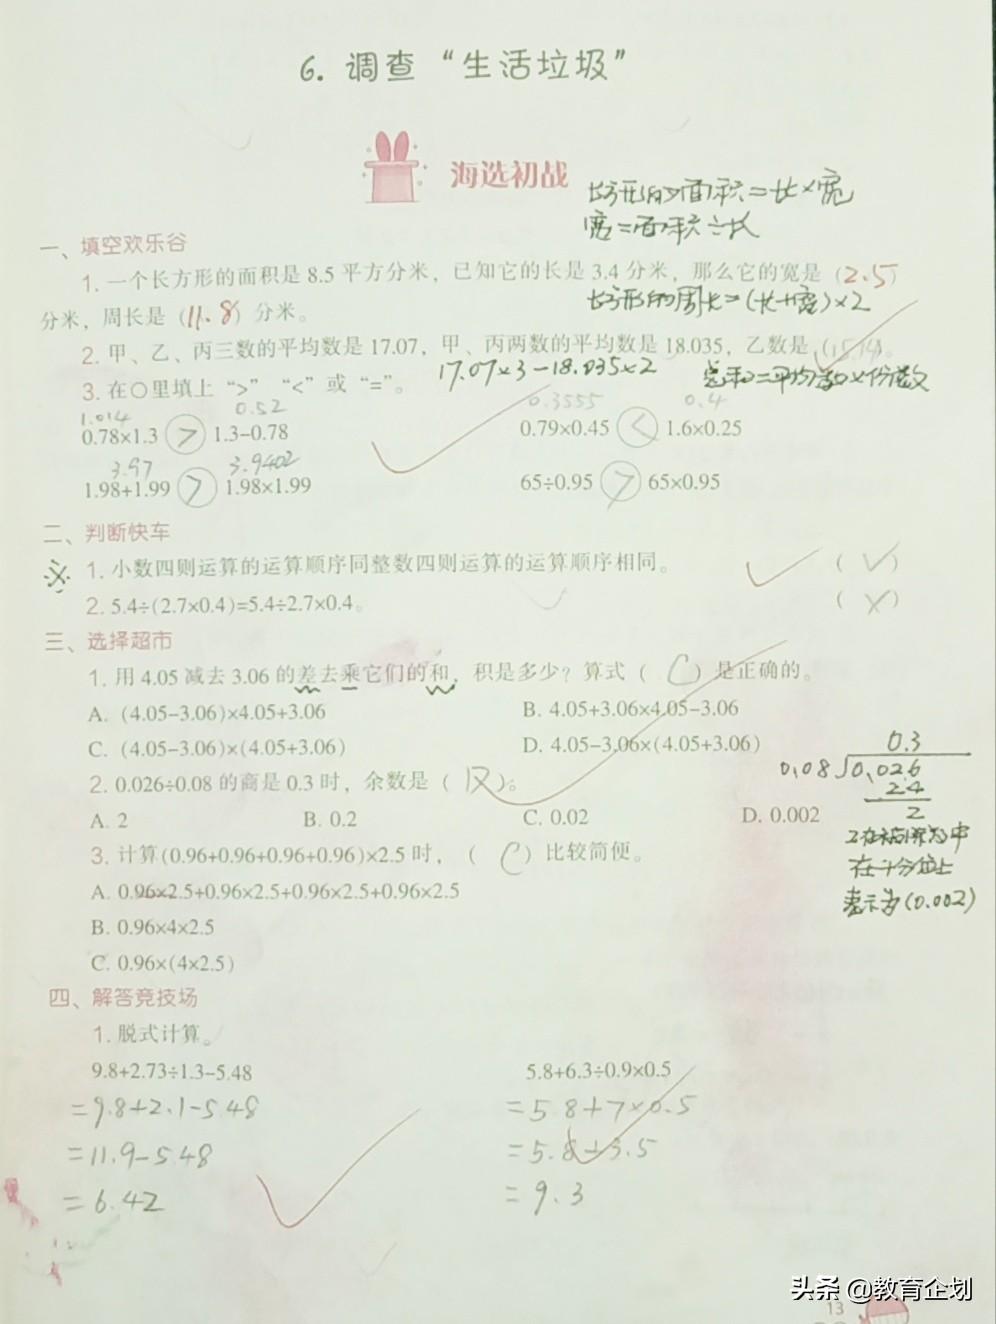 6. 调查“生活垃圾”
海选初战
长方形的面积=长×宽
宽=面积÷长
一、填空欢乐谷
1. 一个长方形的面积是 8.5 平方分米，已知它的长是 3.4 分米，那么它的宽是（2.5）
长方形的周长=(长+宽)×2
分米，周长是（11.8）分米。
2. 甲、乙、丙三数的平均数是 17.07，甲、丙两数的平均数是 18.035，乙数是（15.14）。
17.07×3-18.035×2 总和=平均数×份数
3. 在○里填上“>”“<”或“=”。
1.014 0.52 0.3555 0.4
0.78×1.3 > 1.3-0.78 0.79×0.45 < 1.6×0.25
3.97 3.9402
1.98+1.99 > 1.98×1.99 65÷0.95 > 65×0.95
二、判断快车
※ 1. 小数四则运算的运算顺序同整数四则运算的运算顺序相同。 （√）
2. 5.4÷(2.7×0.4)=5.4÷2.7×0.4。 （×）
三、选择超市
1. 用 4.05 减去 3.06 的差去乘它们的和，积是多少？算式（ C ）是正确的。
A. (4.05-3.06)×4.05+3.06 B. 4.05+3.06×4.05-3.06
C. (4.05-3.06)×(4.05+3.06) D. 4.05-3.06×(4.05+3.06)
2. 0.026÷0.08 的商是 0.3 时，余数是（ ）。
0.3
0.08 0.026
24
2
A. 2 B. 0.2 C. 0.02 D. 0.002
2在被除数中
在十分位上
表示为(0.002)
3. 计算(0.96+0.96+0.96+0.96)×2.5 时，（ C ）比较简便。
A. 0.96×2.5+0.96×2.5+0.96×2.5+0.96×2.5
B. 0.96×4×2.5
C. 0.96×(4×2.5)
四、解答竞技场
1. 脱式计算。
9.8+2.73÷1.3-5.48 5.8+6.3÷0.9×0.5
=9.8+2.1-5.48 =5.8+7×0.5
=11.9-5.48 =5.8+3.5
=6.42 =9.3
头条 @教育企划
13